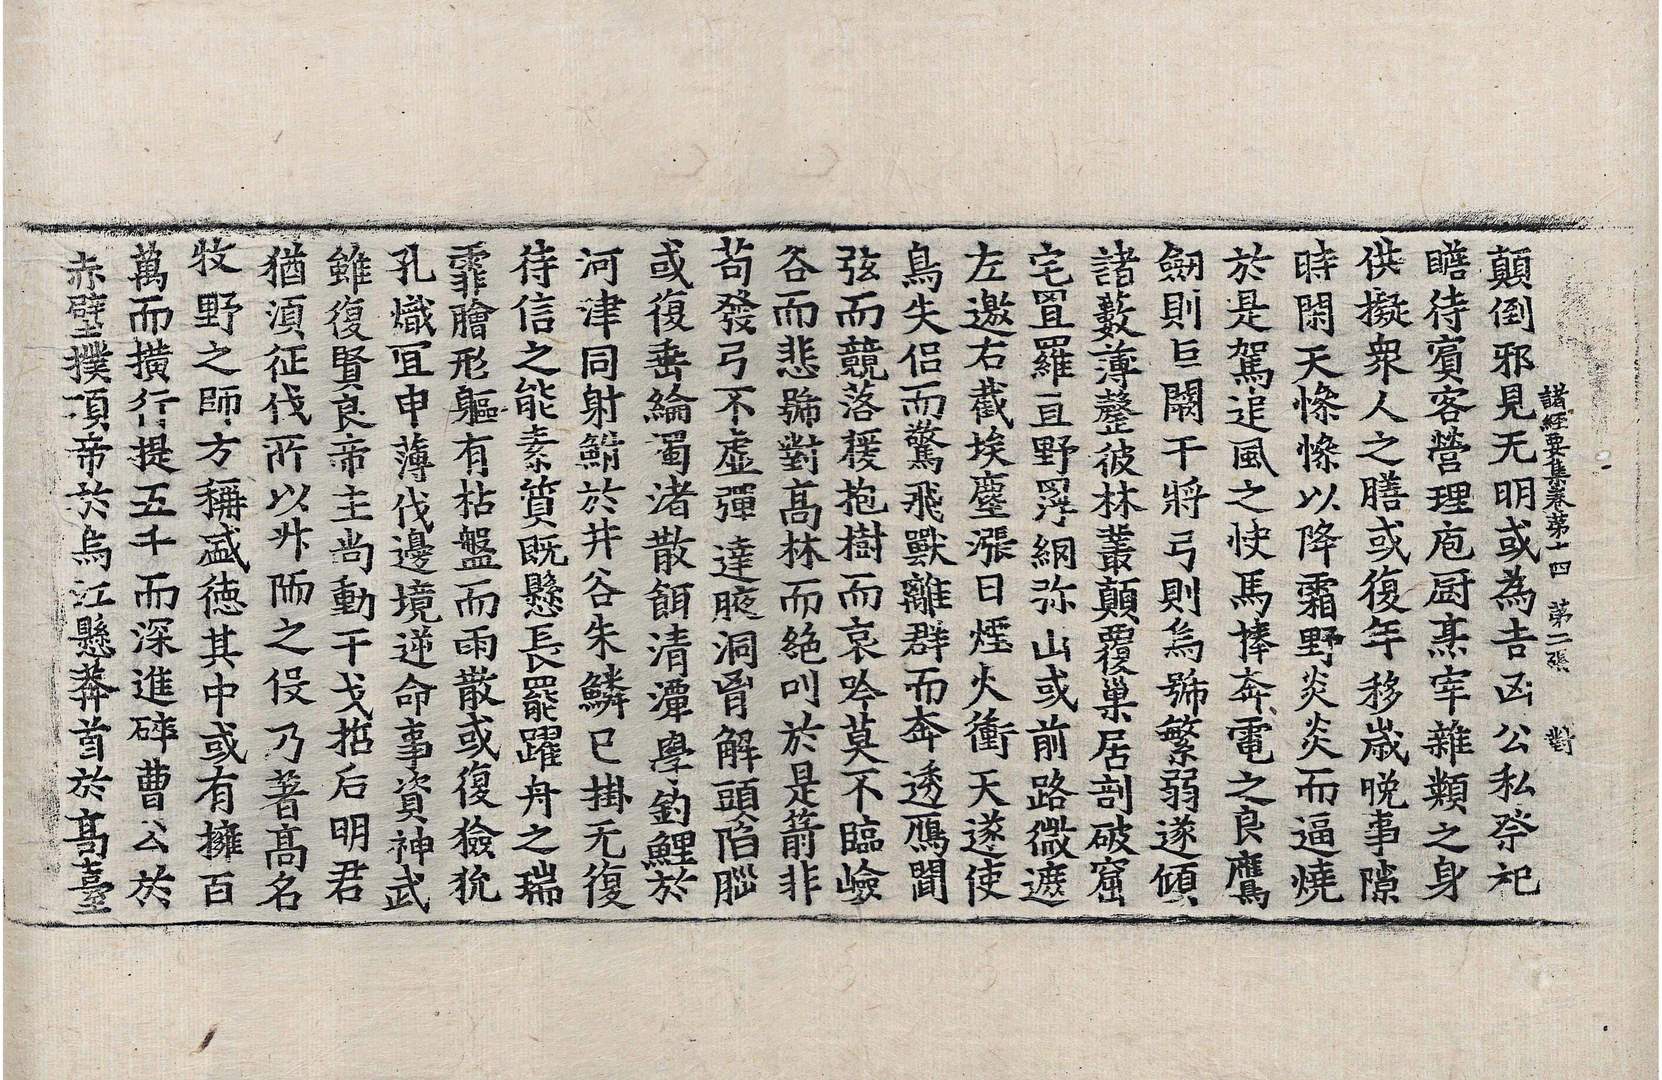 諸經要集卷第十四 第二張 對
顛倒邪見无明或為吉凶公私祭祀
瞻待賓客營理庖厨烹宰雜類之身
供擬衆人之膳或復年移歲晚事隙
時閑天慘慘以降霜野炎炎而逼燒
於是駕追風之快馬捧奔電之良鷹
劒則巨闕干將弓則烏號繁弱遂傾
諸藪薄罄彼林叢顛覆巢居剖破窟
宅罝羅亘野罘網弥山或前路微遮
左邀右截埃塵漲日煙火衝天遂使
鳥失侶而驚飛獸離群而奔透鴈聞
弦而競落猨抱樹而哀吟莫不臨嶮
谷而悲號對高林而絕叫於是箭非
苟發弓不虛彈達腋洞胷解頭陷腦
或復垂綸濁渚散餌清潭學釣鯉於
河津同射鮒於井谷朱鱗已掛无復
待信之能素質旣懸長罷躍舟之瑞
霏膾形軀有枯盤而雨散或復獫狁
孔熾宜申薄伐邊境逆命事資神武
雖復賢良帝主尚動干戈哲后明君
猶須征伐所以升陑之役乃著高名
牧野之師方稱盛徳其中或有擁百
萬而橫行提五千而深進碎曹公於
赤壁撲項帝於烏江懸莽首於高臺